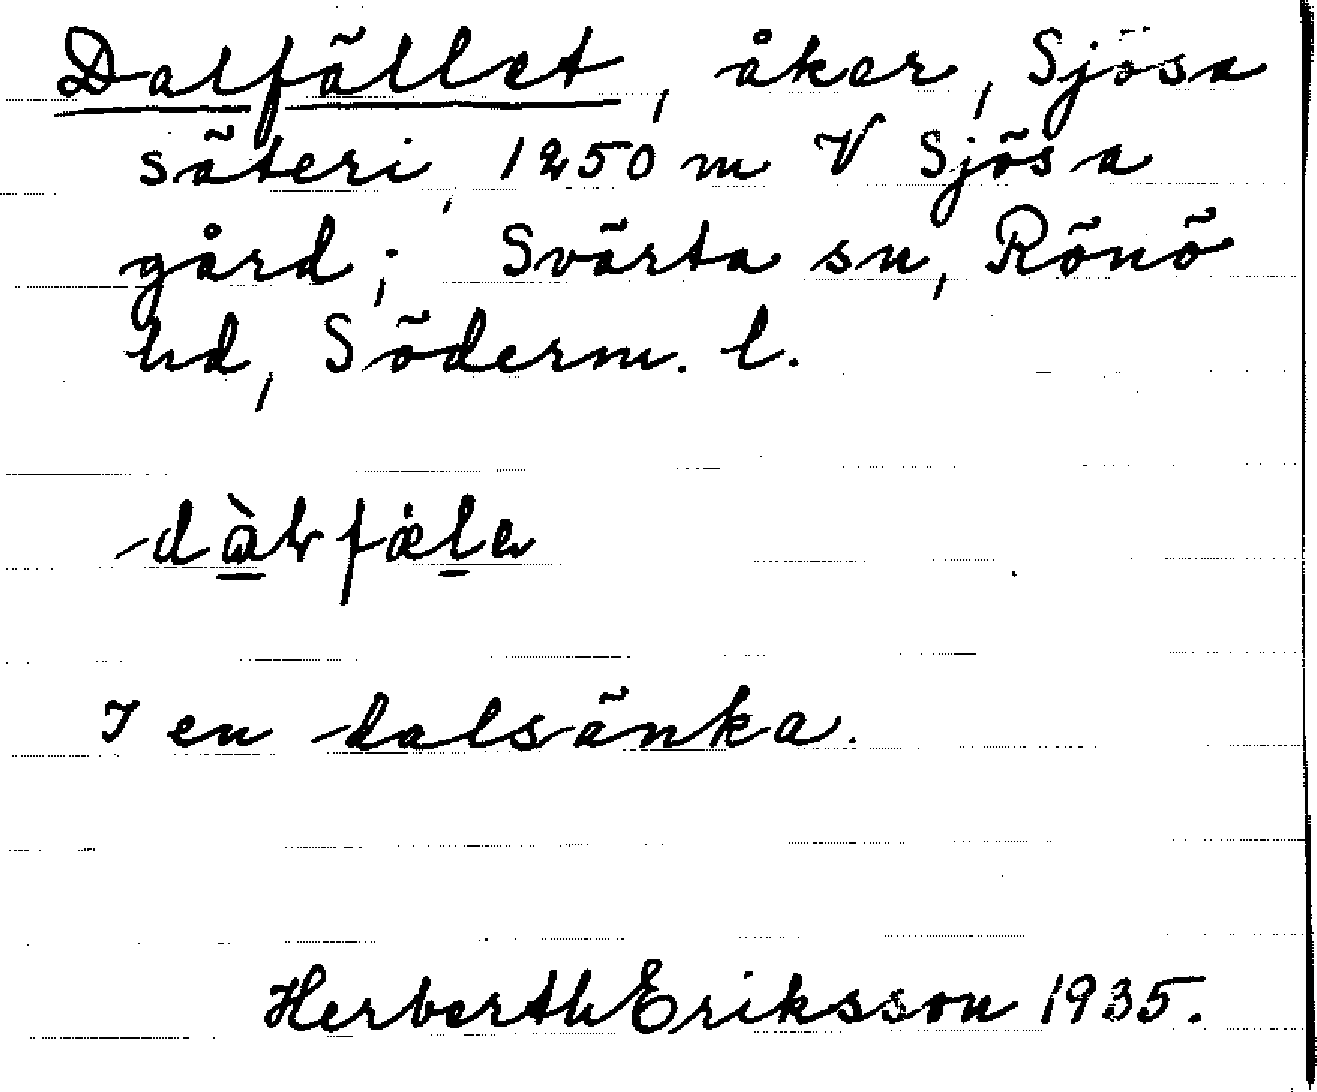 Dalfället, åker, Sjösa
säteri, 1250 m V Sjösa
gård; Svärta sn, Rönö
hd, Söderm. l.
I en dalsänka.
Herberth Eriksson 1935.